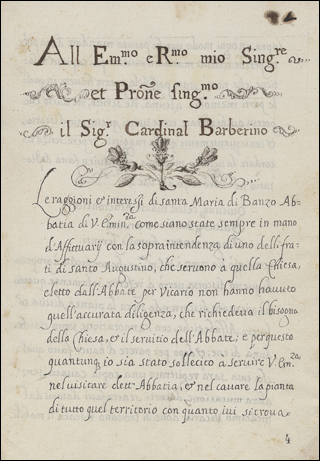 All Em.mo e R.mo mio Sing.re
et Prōne sing.mo
il Sig.r Cardinal Barberino
Le raggioni & interessi di santa Maria di Banzo Ab-
batia di V. Emin.za come siano state sempre in mano
d'Affittuarij con la sopraintendenza di uno delli fra-
ti di santo Augustino, che seruono à quella Chiesa,
eletto dall'Abbate per Vicario non hanno hauuto
quell'accurata diligenza, che richiedeua il bisogno
della Chiesa, & il seruitio dell'Abbate; e per questo
quantunq, io sia stato sollecito à seruire V. Em.za
nel uisitare dett' Abbatia, & nel cauare la pianta
di tutto quel territorio con quanto iui si troua.
4